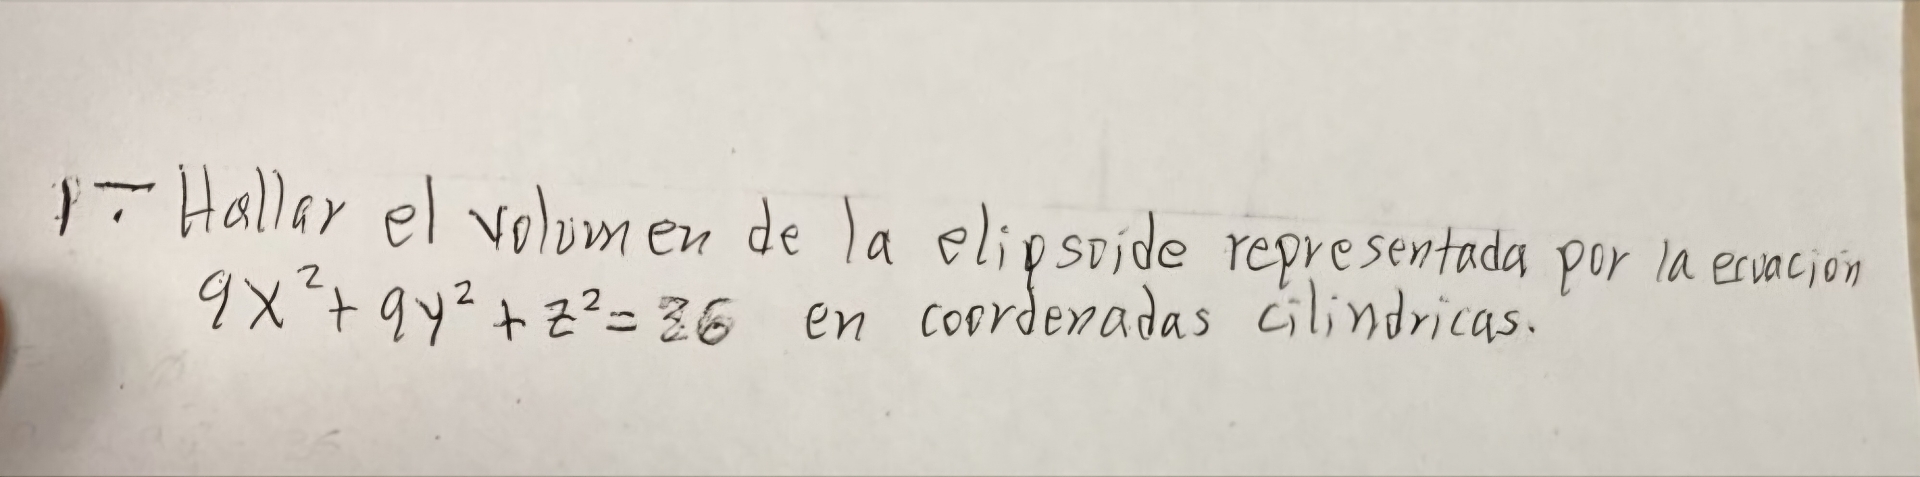 1.- Hallar el volumen de la elipsoide representada por la ecuación
9x² + 9y² + z² = 36 en coordenadas cilindricas.